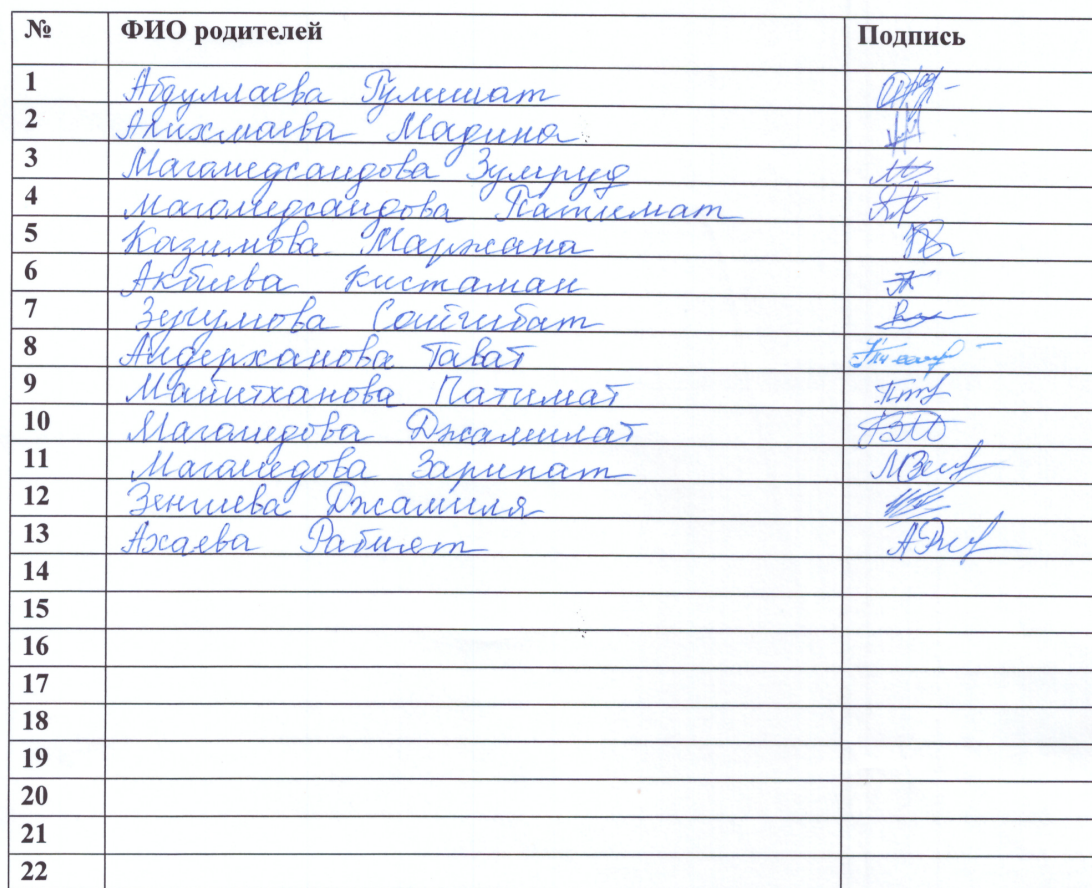 № ФИО родителей Подпись
1 Абдуллаева Гулишат
2 Алихмаева Мадина
3 Магомедсаидова Зумруд
4 Магомедсаидова Патимат
5 Казимова Маржана
6 Акбиева Кистаман
7 Зугумова Сайгибат
8 Айдерханова Тават
9 Майитханова Патимат
10 Магомедова Джамилат
11 Магомедова Зарипат
12 Зенгиева Джамиля
13 Ахаева Рабият
14
15
16
17
18
19
20
21
22